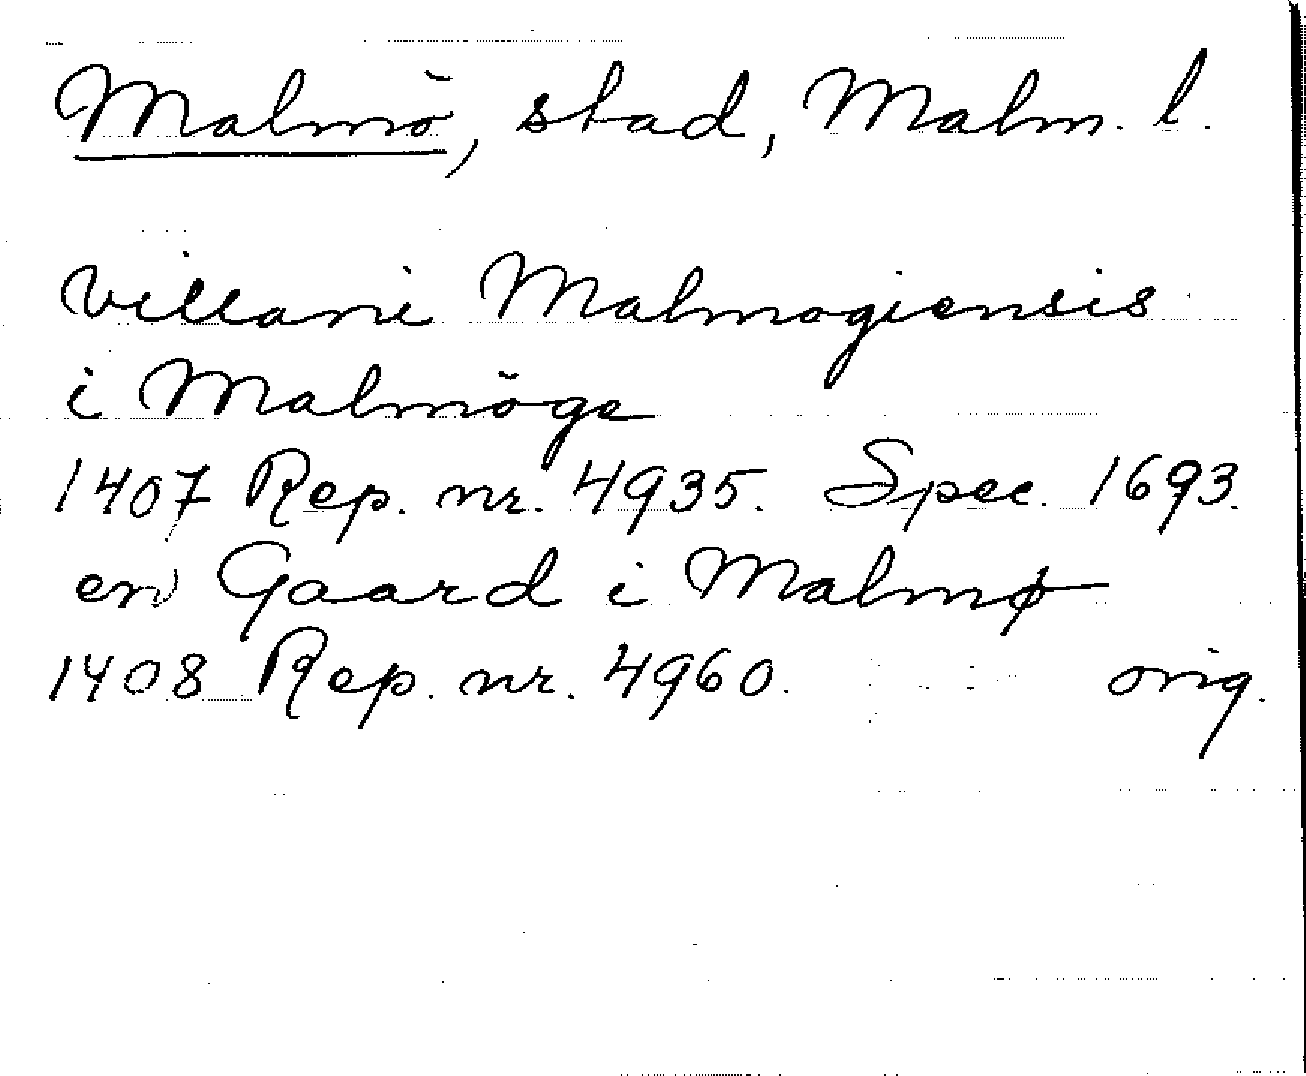 Malmö, stad, Malm. l.
villani Malmogiensis
i Malmöge
1407 Rep. nr. 4935. Spec. 1693.
en Gaard i Malmø
1408 Rep. nr. 4960. orig.